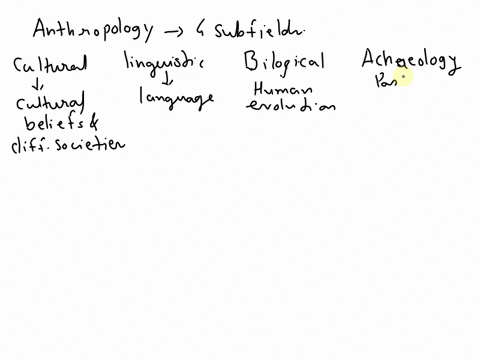 Anthropology → 4 subfields.
Cultural linguistic Bilogical Achaeology
↓ ↓ Human Pas
Cultural language evolution
beliefs &
diff. societies